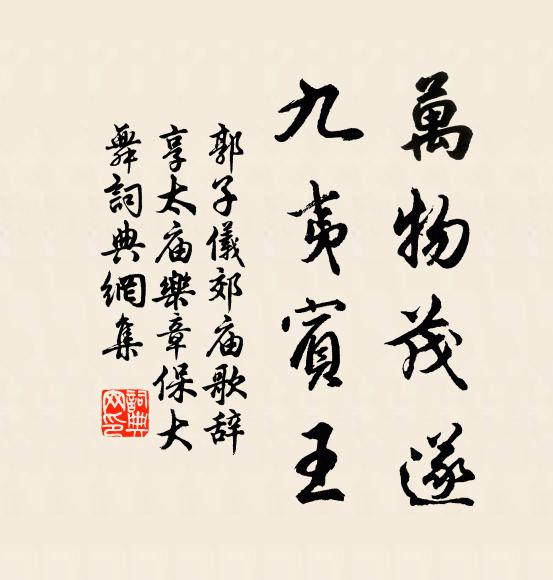 萬物茂遂
九夷賓王
郭子儀郊庙歌辞
享太庙樂章保大
舞詞典網集
詞典
网印